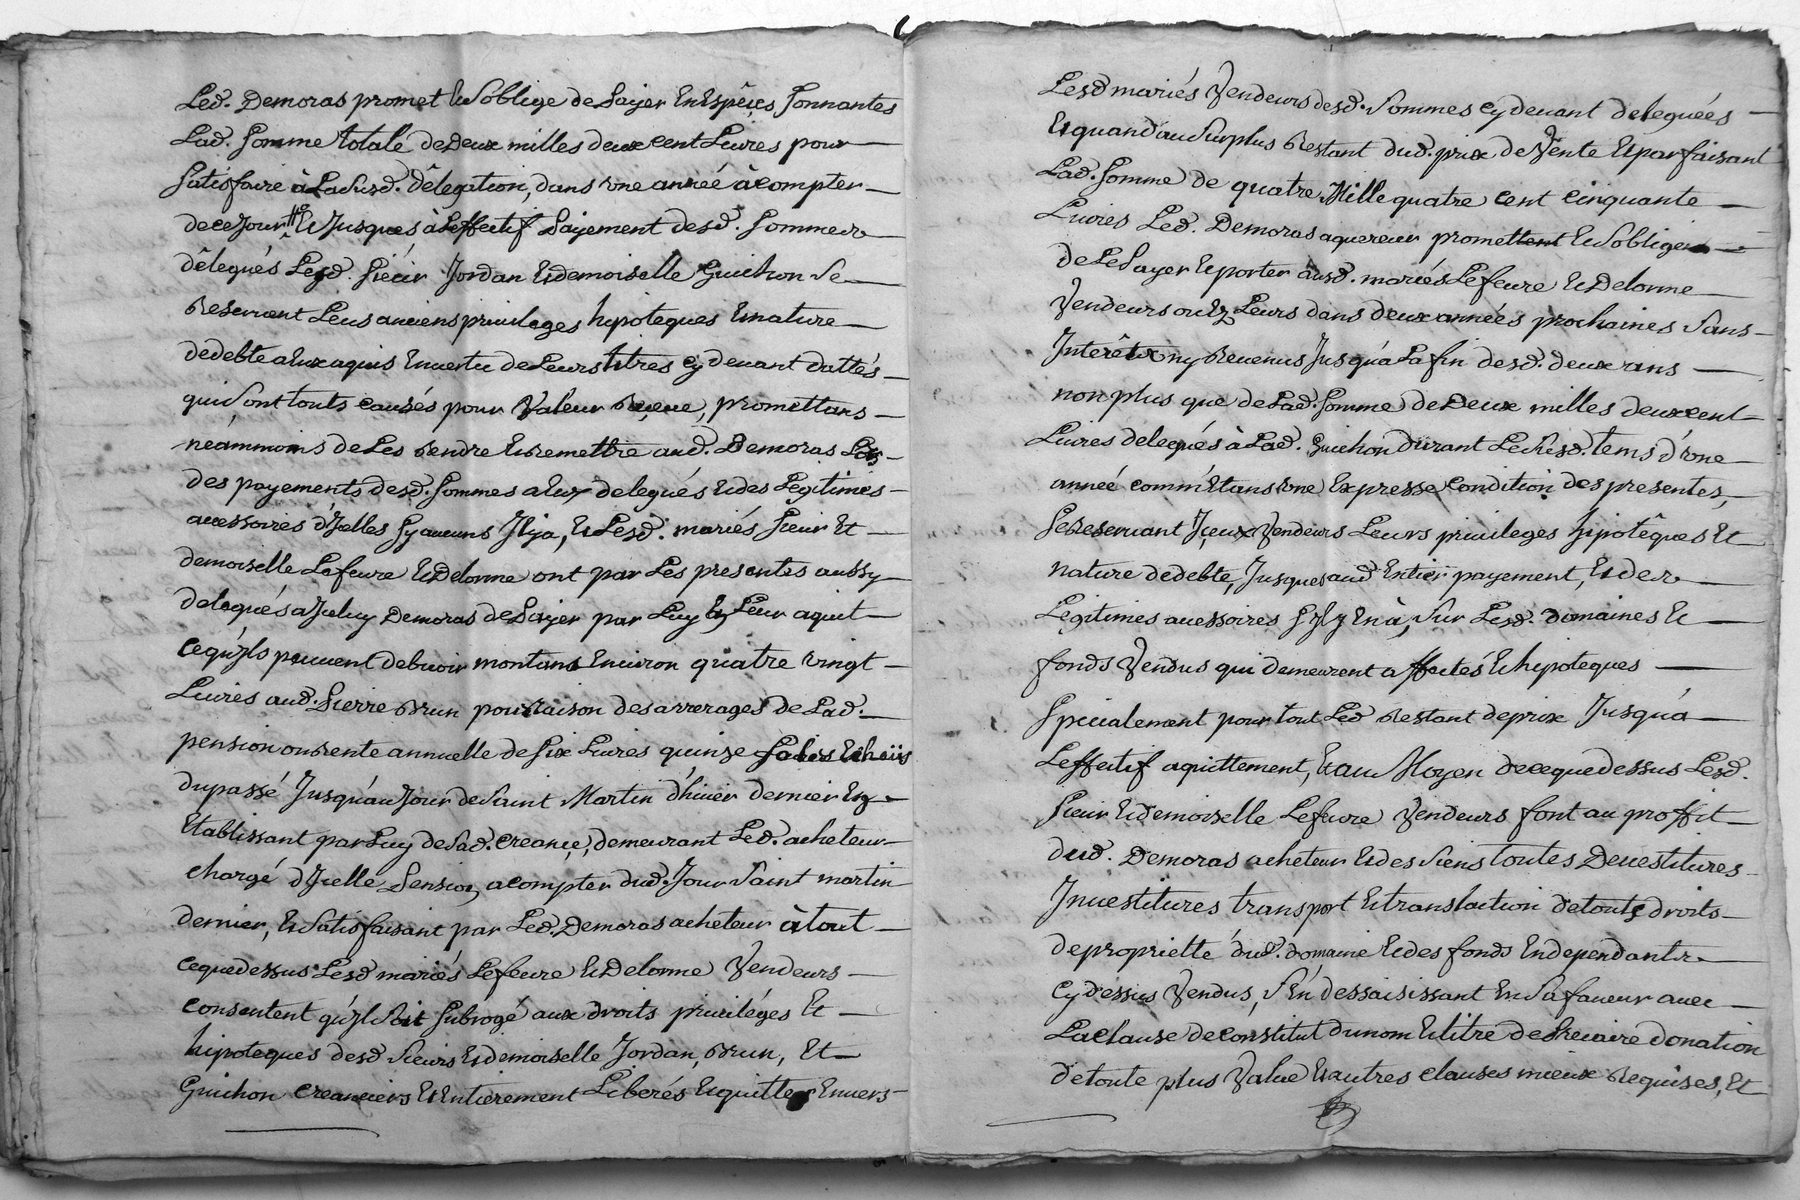 Led. Demoras promet et s'oblige de payer en espèces sonnantes
Lad. somme totale de deux milles deux cent Livres pour
satisfaire à La susd. délegation, dans une année à compter
de ce jour # et jusques à L'effectif payement desd. sommes
délegués Lesd. sieur Jordan et demoiselle Guichon se
reservent Leurs anciens privileges hipoteques et nature
de debte a eux aquis en vertu de Leurs titres cy devant dattés
qui sont touts causés pour valeur reçue, promettans
néammoins de Les rendre et remettre aud. Demoras Lors
des payements desd. sommes a eux delegués et des Legitimes
accessoires d'jcelles sy aucuns Jl y a, et Lesd. mariés sieur et
demoiselle Lefevre et Delorme ont par Les presentes aussy
delegués a Jceluy Demoras de payer par Luy en Leur aquit
ce qu'jls peuvent debvoir montant environ quatre vingt
Livres aud. pierre Brun pour raison des arrerages de Lad.
pension ou rente annuelle de six Livres quinze sols echeüs
du passé Jusqu'au Jour de saint Martin d'hiver dernier en
Etablissant par Luy de sad. creance, demeurant Led. acheteur
chargé d'Jcelle pension, a compter dud. Jour saint martin
dernier, et satisfaisant par Led. Demoras acheteur à tout
ce que dessus Lesd mariés Lefevre et Delorme vendeurs
consentent qu'jl soit subrogé aux droits privilèges et
hipoteques desd sieurs et demoiselle Jordan, Brun, et
Guichon creanciers et entierement Liberés et quittes envers
Lesd mariés vendeurs desd. sommes cy devant deleguées
et quand au surplus restant dud. prix de vente et parfaisant
Lad. somme de quatre Mille quatre cent cinquante
Livres Led. Demoras aquereur promettent et s'obligent
de Le payer et porter ausd. mariés Lefevre et Delorme
vendeurs ou ez Leurs dans deux années prochaines sans
Interêts ny revenus Jusqu'a La fin desd. deux ans
non plus que de Lad. somme de Deux milles deux cent
Livres delegués à Lad. Guichon durant Le susd. tems d'une
année comm'étans une expresse condition des presentes,
se reservant Jceux vendeurs Leurs privileges hipotêques et
nature de debte, Jusques aud entier payement, et de
Legitimes accessoires s'jl y en à, sur Lesd. domaines et
fonds vendus qui demeurent affectés et hipoteques
specialement pour tout Led restant de prix Jusqu'a
L'effectif aquittement, et au Moyen de ce que dessus Lesd.
sieur et demoiselle Lefevre vendeurs font au proffit
dud. Demoras acheteur et des siens toutes Devestitures
Investitures transport et translation de touts droits
de proprietté dud. domaine et des fonds en dependants
cy dessus vendus, s'en dessaisissant en sa faveur avec
La clause de constitut du nom et titre de precaire donation
de toute plus value et autres clauses mieux requises, et